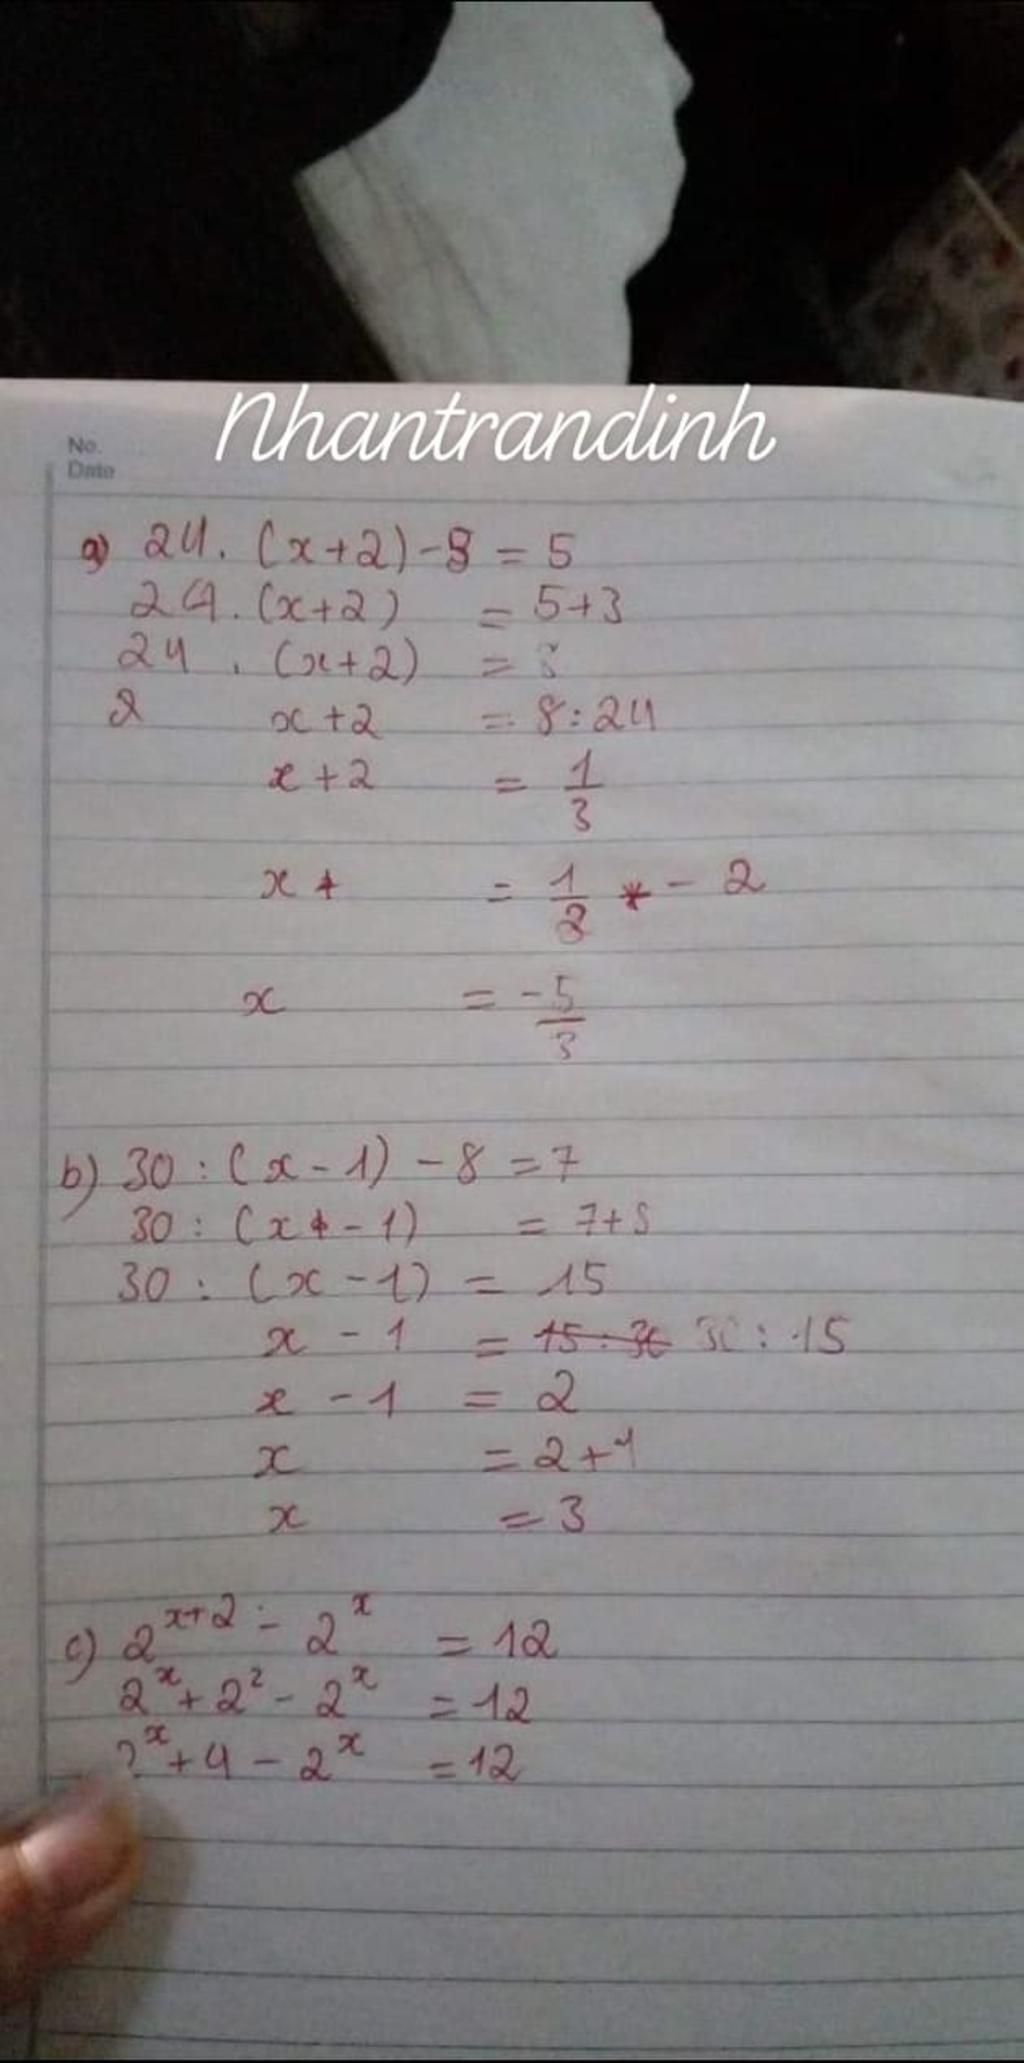 Nhantrandinh
No.
Date
a) 24. (x+2)-3 = 5
24. (x+2) = 5+3
24 . (x+2) = 8
2 x+2 = 8:24
x+2 = 1/3
x = 1/3 - 2
x = -5/3
b) 30 : (x-1) - 8 = 7
30 : (x-1) = 7+8
30 : (x-1) = 15
x - 1 = 30 : 15
x - 1 = 2
x = 2+1
x = 3
c) 2^(x+2) - 2^x = 12
2^x + 2^2 - 2^x = 12
2^x + 4 - 2^x = 12